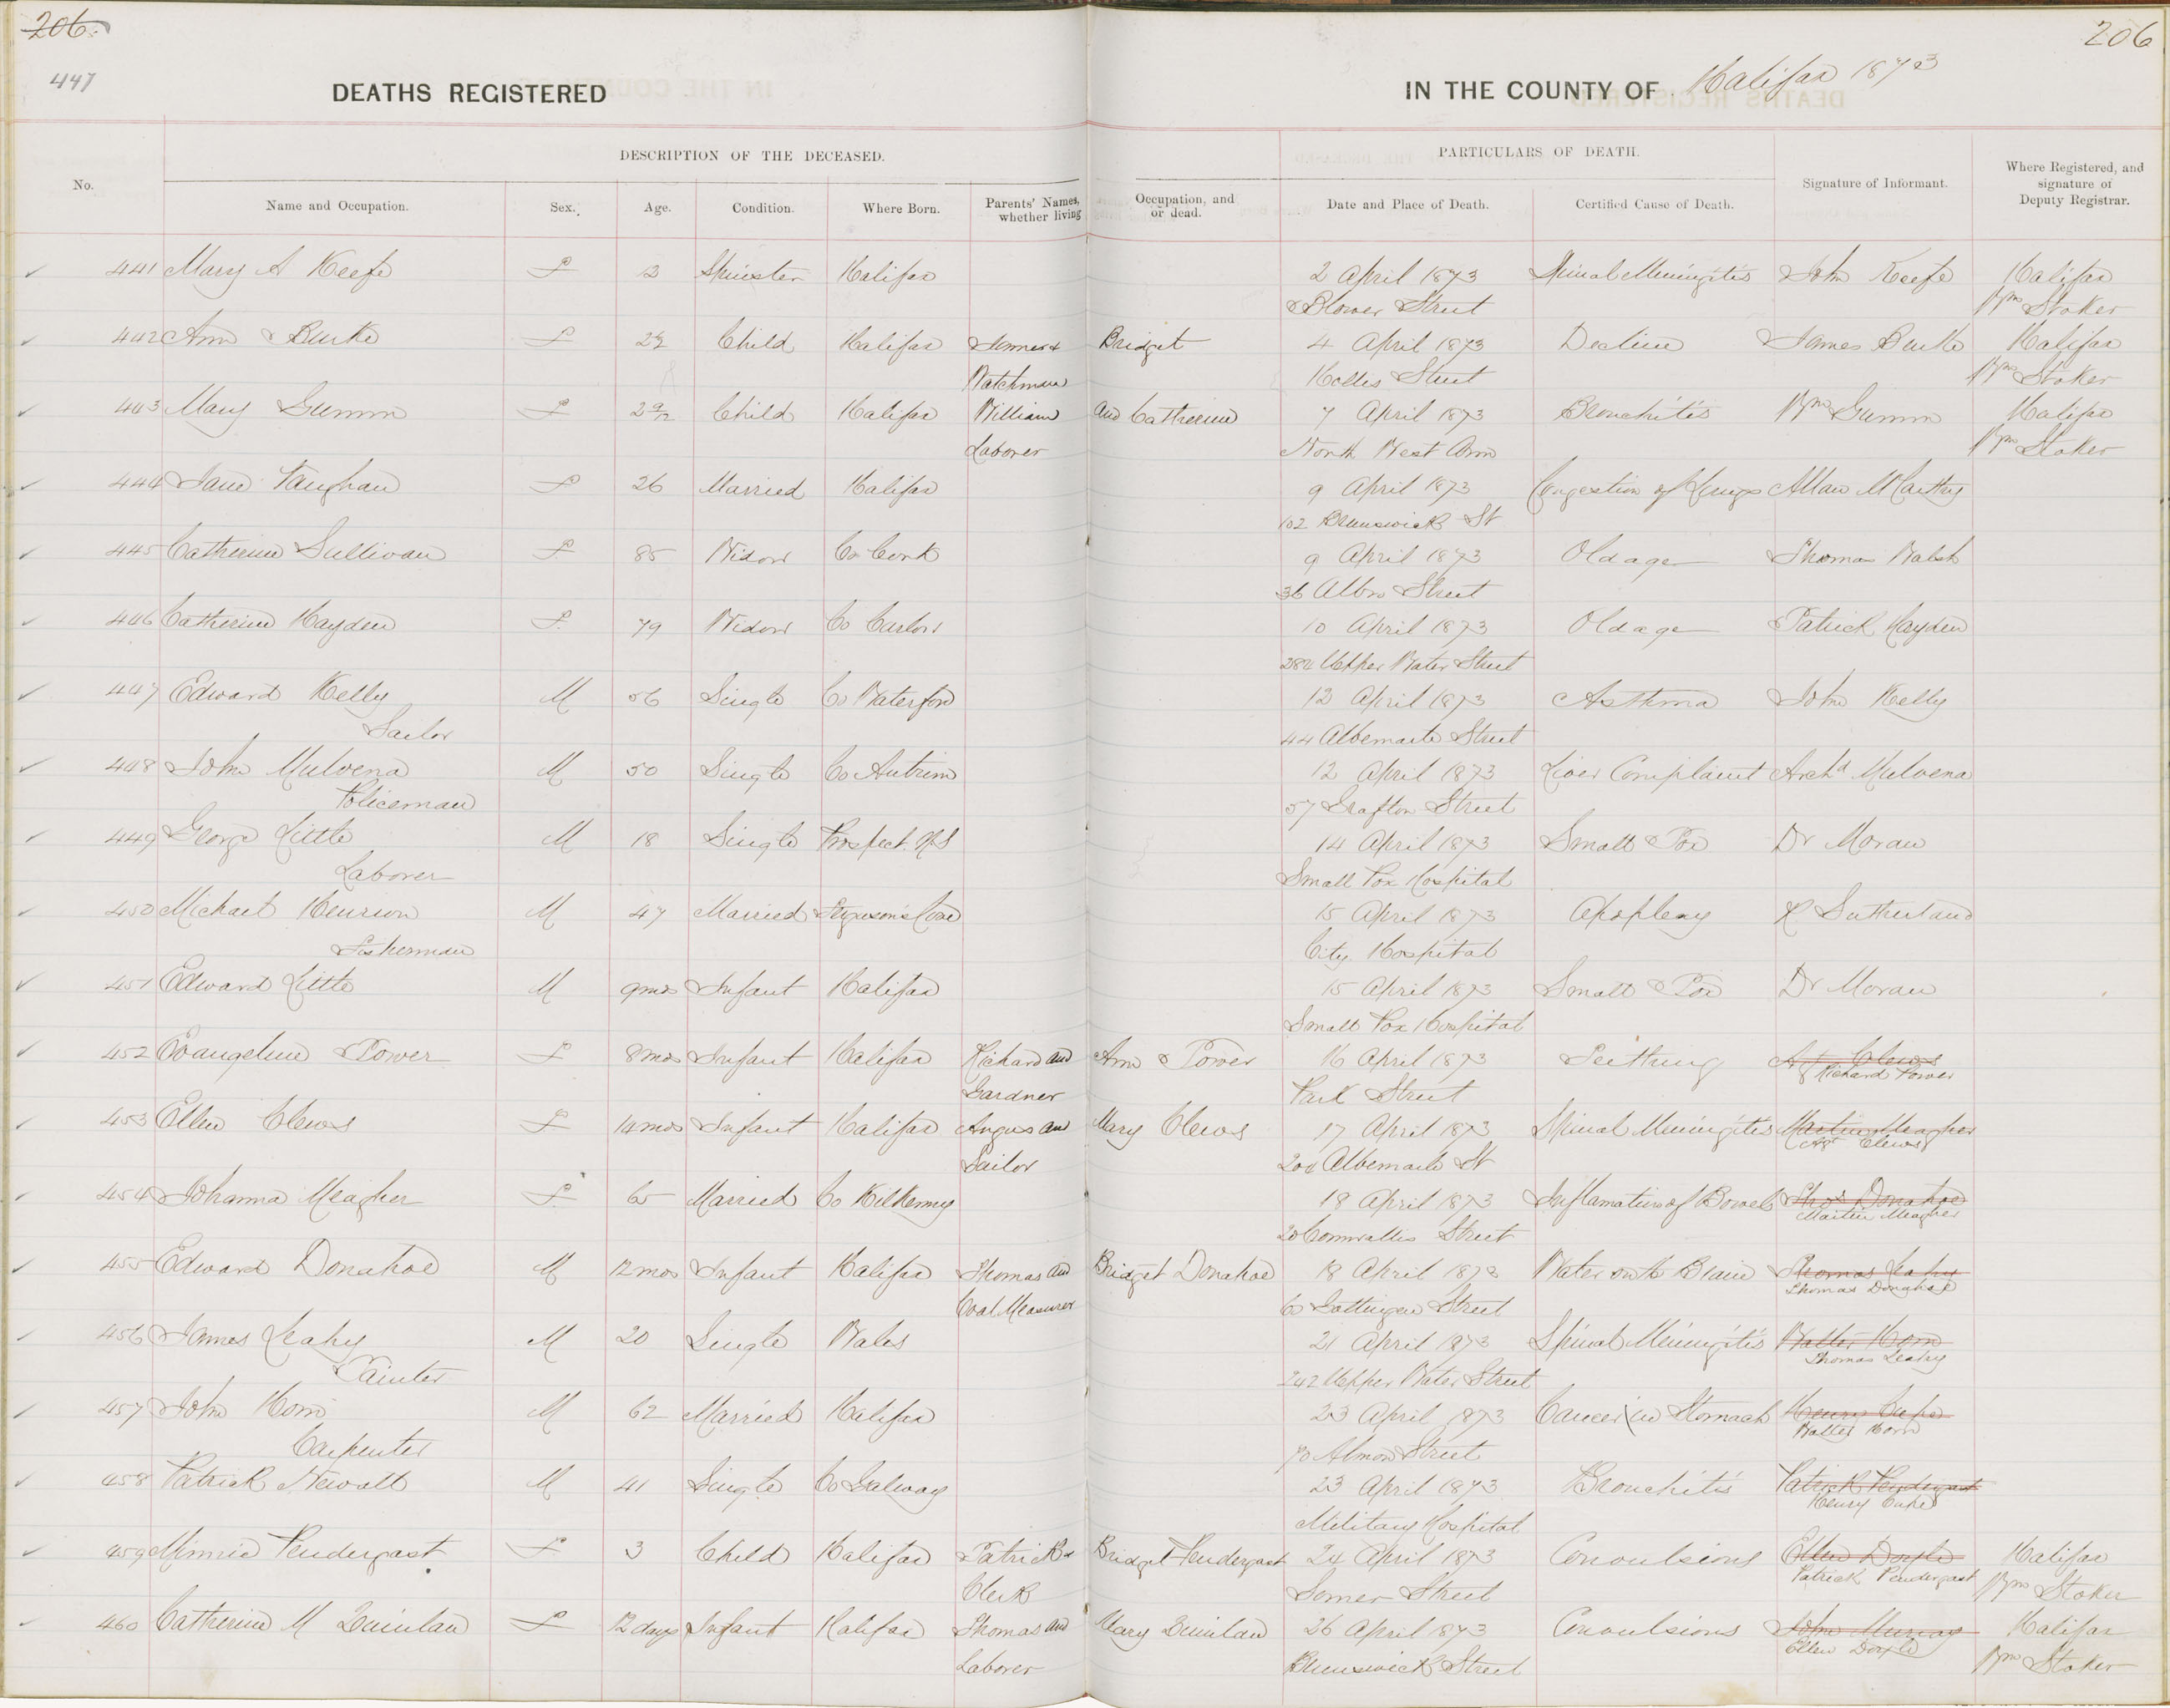 206.
206
447
DEATHS REGISTERED
IN THE COUNTY OF Halifax 1873
DESCRIPTION OF THE DECEASED.
PARTICULARS OF DEATH.
No.
Name and Occupation.
Sex.
Age.
Condition.
Where Born.
Parents' Names, whether living
Occupation, and or dead.
Date and Place of Death.
Certified Cause of Death.
Signature of Informant.
Where Registered, and signature of Deputy Registrar.
441 Mary A Keefe F Spinster Halifax 2 April 1873 Spinal Meningitis John Keefe Halifax
Blower Street Wm Stoker
442 Ann Burke F Child Halifax James & Bridget 4 April 1873 Decline James Burke Halifax
Watchman Hollis Street Wm Stoker
443 Mary Gumm F 2 9/12 Child Halifax William and Catherine 7 April 1873 Bronchitis Wm Gumm Halifax
Laborer North West Arm Wm Stoker
444 Jane Vaughan F 26 Married Halifax 9 April 1873 Congestion of Lungs Allan McCarthy
102 Brunswick St
445 Catherine Sullivan F 85 Widow Co Cork 9 April 1873 Old age Thomas Walsh
36 Albro Street
446 Catherine Hayden F 79 Widow Co Carlow 10 April 1873 Old age Patrick Hayden
284 Upper Water Street
447 Edward Kelly M 56 Single Co Waterford 12 April 1873 Asthma John Kelly
Sailor 44 Albemarle Street
448 John Mulvena M 50 Single Co Antrim 12 April 1873 Liver Complaint Archd Mulvena
Policeman 57 Grafton Street
449 George Little M 18 Single Prospect. N S 14 April 1873 Small Pox Dr Moran
Laborer Small Pox Hospital
450 Michael Henrion M 47 Married Ferguson's Cove 15 April 1873 Apoplexy R Sutherland
Fisherman City Hospital
451 Edward Little M 9 mos Infant Halifax 15 April 1873 Small Pox Dr Moran
Small Pox Hospital
452 Evangeline Power F 8 mos Infant Halifax Richard and Ann Power 16 April 1873 Teething Agt Clews
Richard Power
Gardner Park Street
453 Ellen Clews F 14 mos Infant Halifax Angus and Mary Clews 17 April 1873 Spinal Meningitis Martin Meagher
Agt Clews
Sailor 204 Albemarle St
454 Johanna Meagher F 65 Married Co Kilkenny 18 April 1873 Inflamation of Bowels Thos Donahoe
Martin Meagher
20 Cornwallis Street
455 Edward Donahoe M 12 mos Infant Halifax Thomas and Bridget Donahoe 18 April 1873 Water on the Brain Thomas Leahy
Thomas Donahoe
Coal Measurer Gottingen Street
456 James Leahy M 20 Single Wales 21 April 1873 Spinal Meningitis Walter Horn
Thomas Leahy
Painter 242 Upper Water Street
457 John Horn M 62 Married Halifax 23 April 1873 Cancer in Stomach Henry Cupe
Walter Horn
Carpenter 70 Almon Street
458 Patrick Newall M 41 Single Co Galway 23 April 1873 Bronchitis Patrick Pendergast
Henry Cupe
Military Hospital
459 Minnie Pendergast F 3 Child Halifax Patrick & Bridget Pendergast 24 April 1873 Convulsions Ellen Doyle Halifax
Patrick Pendergast
Clerk Somer Street Wm Stoker
460 Catherine M Quinlan F 12 days Infant Halifax Thomas and Mary Quinlan 26 April 1873 Convulsions John Murray Halifax
Ellen Doyle
Laborer Brunswick Street Wm Stoker